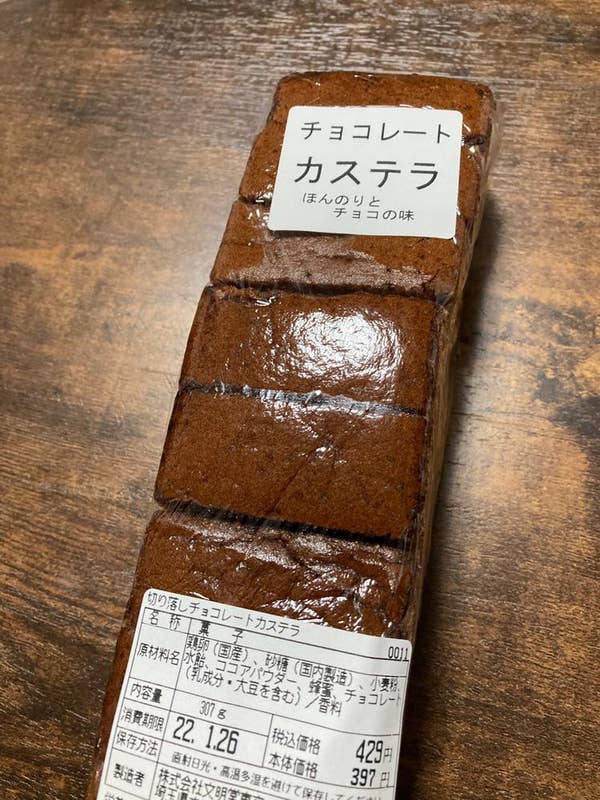 チョコレート
カステラ
ほんのりと
チョコの味
切り落しチョコレートカステラ
0011
名 称 菓 子
原材料名 鶏卵(国産)、砂糖(国内製造)、小麦粉、
水飴、ココアパウダー、蜂蜜、チョコレート
(乳成分・大豆を含む)/香料
内容量 307g
消費期限 22. 1.26
税込価格 429円
本体価格 397円
保存方法 直射日光・高温多湿を避けて保存してくだ
製造者 株式会社文明堂東京
埼玉県